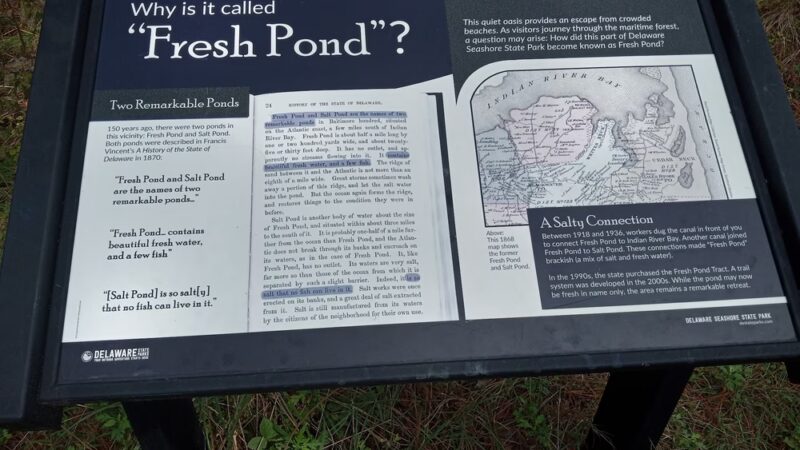 Why is it called
"Fresh Pond"?
This quiet oasis provides an escape from crowded
beaches. As visitors journey through the maritime forest,
a question may arise: How did this part of Delaware
Seashore State Park become known as Fresh Pond?
Two Remarkable Ponds
150 years ago, there were two ponds in
this vicinity: Fresh Pond and Salt Pond.
Both ponds were described in Francis
Vincent's A History of the State of
Delaware in 1870:
"Fresh Pond and Salt Pond
are the names of two
remarkable ponds..."
"Fresh Pond... contains
beautiful fresh water,
and a few fish"
"[Salt Pond] is so salt[y]
that no fish can live in it."
24 HISTORY OF THE STATE OF DELAWARE.
Fresh Pond and Salt Pond are the names of two
remarkable ponds in Baltimore hundred, situated
on the Atlantic coast, a few miles south of Indian
River Bay. Fresh Pond is about half a mile long by
one or two hundred yards wide, and about twenty-
five or thirty feet deep. It has no outlet, and ap-
parently no streams flowing into it. It contains
beautiful fresh water, and a few fish. The ridge of
sand between it and the Atlantic is not more than an
eighth of a mile wide. Great storms sometimes wash
away a portion of this ridge, and let the salt water
into the pond. But the ocean again forms the ridge,
and restores things to the condition they were in
before.
Salt Pond is another body of water about the size
of Fresh Pond, and situated within about three miles
to the south of it. It is probably one-half of a mile far-
ther from the ocean than Fresh Pond, and the Atlan-
tic does not break through its banks and encroach on
its waters, as in the case of Fresh Pond. It, like
Fresh Pond, has no outlet. Its waters are very salt,
far more so than those of the ocean from which it is
separated by such a slight barrier. Indeed, it is so
salt that no fish can live in it. Salt works were once
erected on its banks, and a great deal of salt extracted
from it. Salt is still manufactured from its waters
by the citizens of the neighborhood for their own use.
INDIAN RIVER BAY
CEDAR NECK
Above:
This 1868
map shows
the former
Fresh Pond
and Salt Pond.
A Salty Connection
Between 1918 and 1936, workers dug the canal in front of you
to connect Fresh Pond to Indian River Bay. Another canal joined
Fresh Pond to Salt Pond. These connections made "Fresh Pond"
brackish (a mix of salt and fresh water).
In the 1990s, the state purchased the Fresh Pond Tract. A trail
system was developed in the 2000s. While the pond may now
be fresh in name only, the area remains a remarkable retreat.
DELAWARE STATE PARKS
YOUR OUTDOOR ADVENTURE STARTS HERE
DELAWARE SEASHORE STATE PARK
destateparks.com